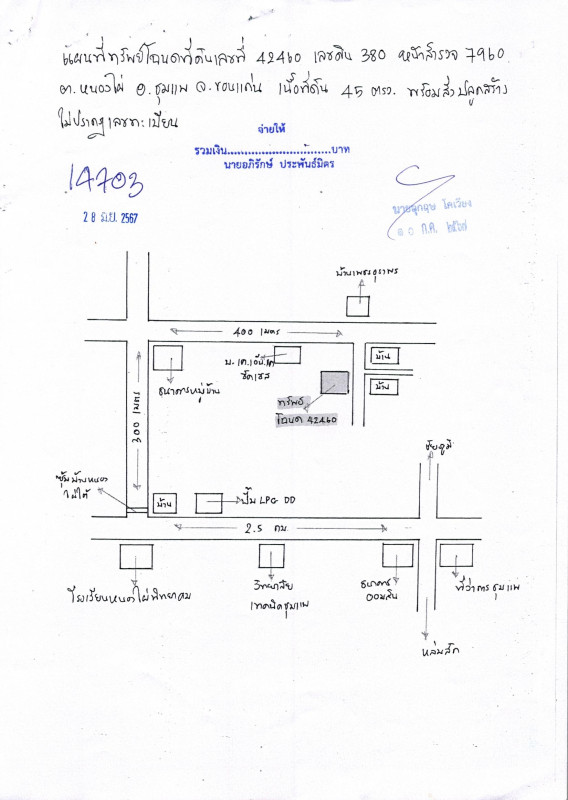 แผนที่ทรัพย์โฉนดที่ดินเลขที่ 42460 เลขดิน 380 หน้าสำรวจ 7960
ต.หนองไผ่ อ.ชุมแพ จ.ขอนแก่น เนื้อที่ดิน 45 ตรว. พร้อมสิ่งปลูกสร้าง
ไม่ปรากฏเลขทะเบียน
จ่ายให้
รวมเงิน..............................บาท
นายอภิรักษ์ ประพันธ์มิตร
14703
28 มิ.ย. 2567
๑๐ ก.ค. ๒๕๖๗
400 เมตร
บ้าน
ธนาคารหมู่บ้าน
ทรัพย์
โฉนด 42460
บ้าน
300 เมตร
ชัยภูมิ
ซุ้มบ้านหนอง
ไผ่ใต้
บ้าน
ปั๊ม LPG DD
2.5 กม.
โรงเรียนหนองไผ่พิทยาคม
วิทยาลัย
เทคนิคชุมแพ
ธนาคาร
ออมสิน
ที่ว่าการชุมแพ
หล่มสัก